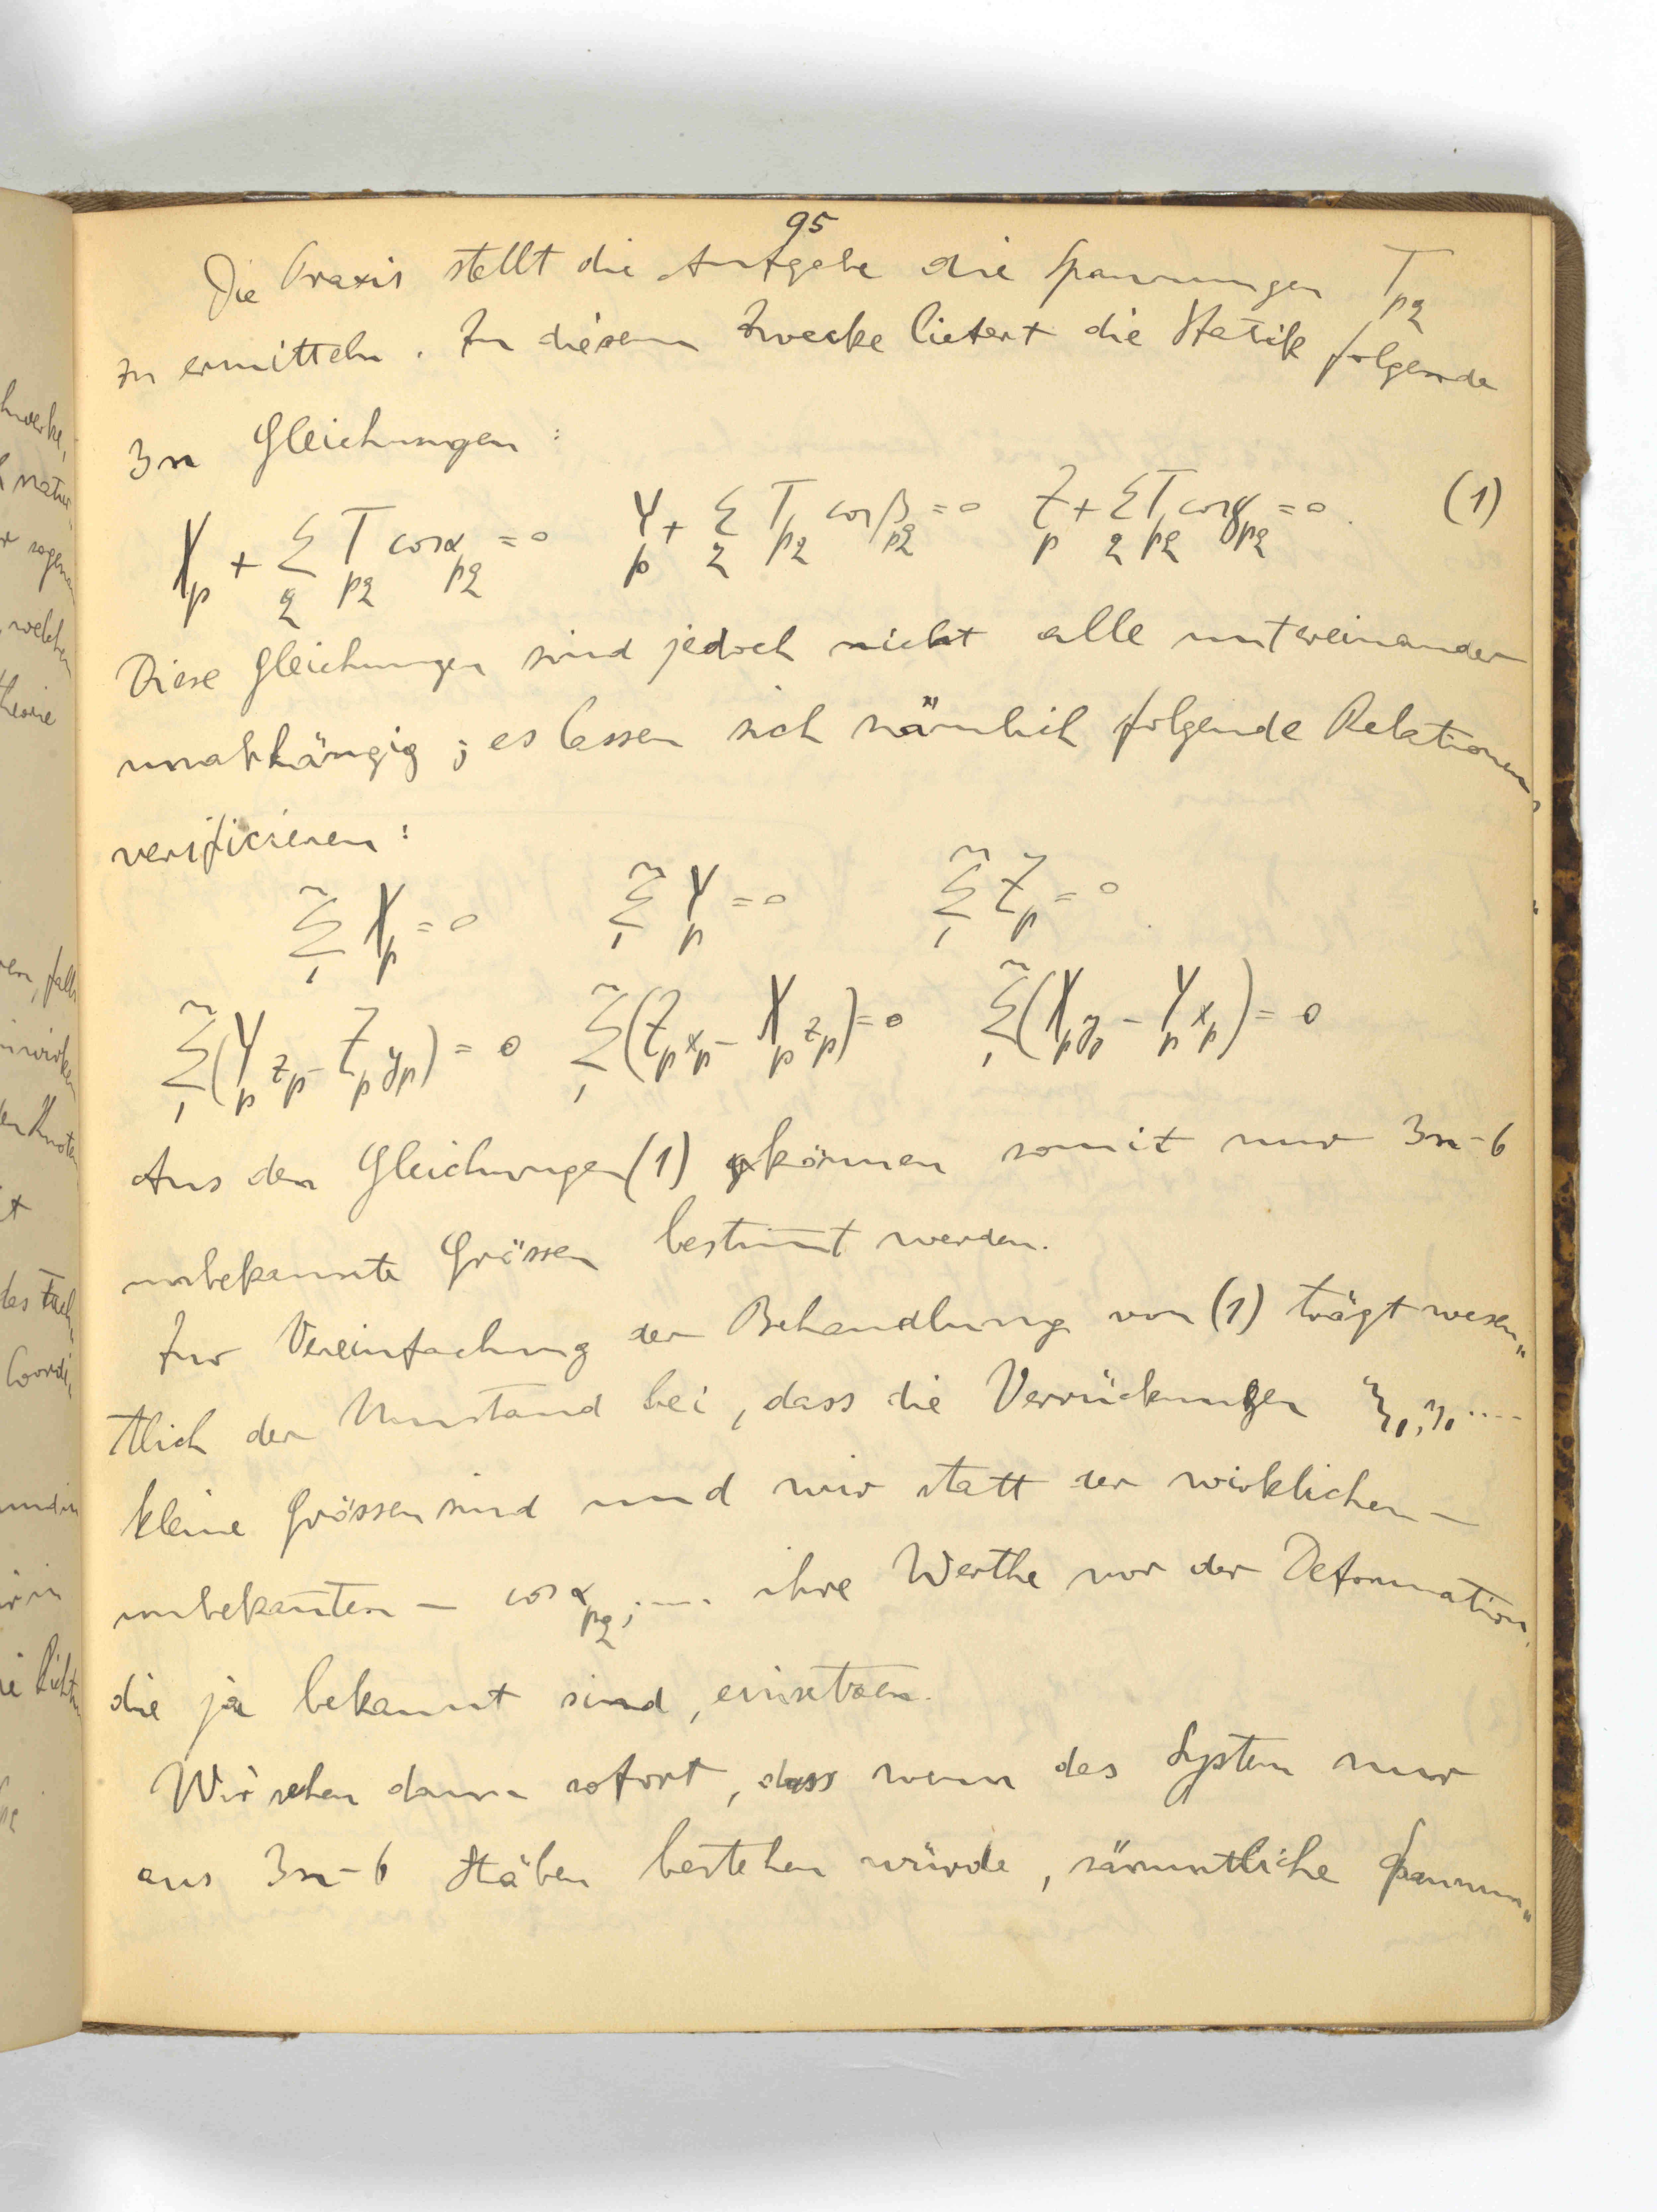 95
Die Praxis stellt die Aufgabe die Spannungen T_pq
zu ermitteln. Zu diesem Zwecke liefert die Statik folgende
3n Gleichungen:
X_p + Σ_q T_pq cosα_pq = 0 Y_p + Σ_q T_pq cosβ_pq = 0 Z_p + Σ_q T_pq cosγ_pq = 0. (1)
Diese Gleichungen sind jedoch nicht alle untereinander
unabhängig; es lassen sich nämlich folgende Relationen
verificieren:
Σ_1^n X_p = 0 Σ_1^n Y_p = 0 Σ_1^n Z_p = 0
Σ_1^n (Y_p z_p - Z_p y_p) = 0 Σ_1^n (Z_p x_p - X_p z_p) = 0 Σ_1^n (X_p y_p - Y_p x_p) = 0
Aus den Gleichungen (1) können somit nur 3n-6
unbekannte Grössen bestim̄t werden.
Zur Vereinfachung der Behandlung von (1) trägt wesen„
tlich der Umstand bei, dass die Verrückungen ξ_p, η_p ....
kleine Grössen sind und wir statt der wirklichen –
unbekan̄ten – cosα_pq, .... ihre Werthe vor der Deformation,
die ja bekannt sind, einsetzen.
Wir sehen dann sofort, dass wenn das System nur
aus 3n-6 Stäben bestehen würde, sämmtliche Spannun„
hwerke,
natur
r sogen
, welchen
theorie
en, falls
inwirken
den Knoten
it
des Fach„
Coordi„
und in
ir in
ie Richt